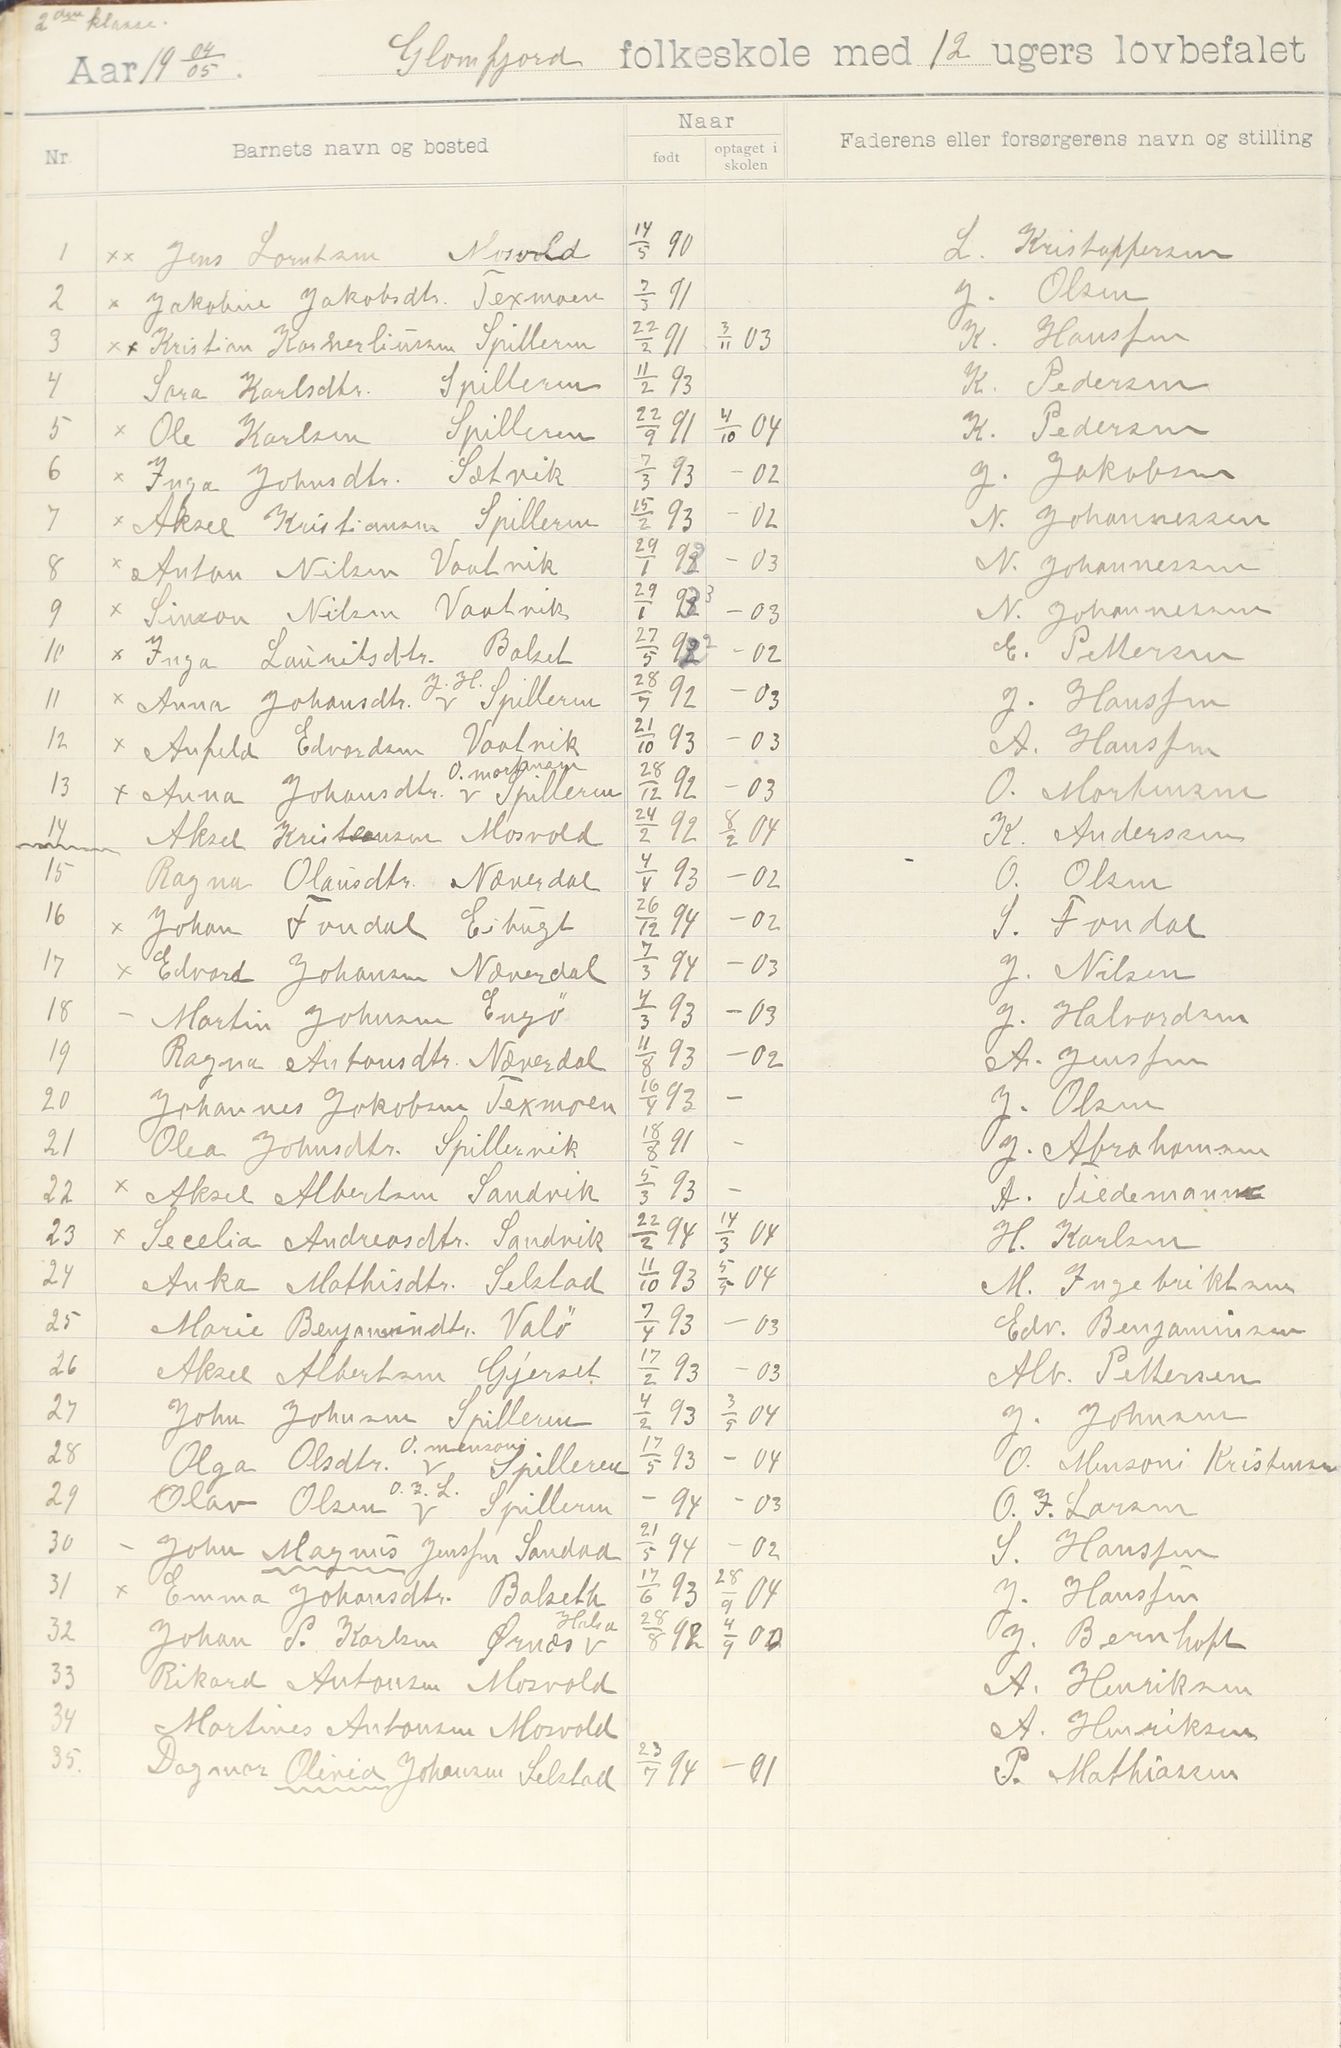 2den klasse.
Aar 19 04/05. Glomfjord folkeskole med 12 ugers lovbefalet
Nr. Barnets navn og bosted Naar født optaget i skolen Faderens eller forsørgerens navn og stilling
1 xx Jens Lorntsen Mosvold 14/5 90 L. Kristoffersen
2 x Jakobine Jakobsdtr. Texmoen 7/3 91 J. Olsen
3 xx Kristian Karnerliussen Spilleren 22/2 91 3/11 03 K. Hanssen
4 Sara Karlsdtr. Spilleren 11/2 93 K. Pedersen
5 x Ole Karlsen Spilleren 22/9 91 4/10 04 K. Pedersen
6 x Inga Johnsdtr. Sætvik 7/3 93 - 02 J. Jakobsen
7 x Aksel Kristiansen Spilleren 15/2 93 - 02 N. Johannessen
8 x Anton Nilsen Vaatvik 29/1 - 03 N. Johannessen
9 x Simon Nilsen Vaatvik 29/1 - 03 N. Johannessen
10 x Inga Lauritsdtr. Balset 27/5 92 - 02 E. Pettersen
11 x Anna Johansdtr. J. H. v Spilleren 28/7 92 - 03 J. Hanssen
12 x Anfeld Edvardsen Vaatvik 21/10 93 - 03 A. Hanssen
13 x Anna Johansdtr. O. mortensen v Spilleren 28/12 92 - 03 O. Mortensen
14 Aksel Kristensen Mosvold 24/2 92 8/2 04 K. Anderssen
15 Ragna Olausdtr. Næverdal 4/4 93 - 02 O. Olsen
16 x Johan Fondal Eihügt 26/12 94 - 02 S. Fondal
17 x Edvard Johansen Næverdal 7/3 94 - 03 J. Nilsen
18 - Martin Johnsen Engö 4/3 93 - 03 J. Halvordsen
19 Ragna Antonsdtr. Næverdal 11/8 93 - 02 A. Jenssen
20 Johannes Jakobsen Texmoen 16/4 93 - J. Olsen
21 Olea Johnsdtr. Spillervik 18/8 91 - J. Abrahamsen
22 x Aksel Albertsen Sandvik 5/3 93 - A. Tiedemann
23 x Secelia Andreasdtr. Sandvik 22/2 94 14/3 04 H. Karlsen
24 Anka Mathisdtr. Selstad 11/10 93 5/5 04 M. Ingebriktsen
25 Marie Benjamindtr. Valö 7/4 93 - 03 Edv. Benjaminsen
26 Aksel Albertsen Gjerset 17/2 93 - 03 Alb. Pettersen
27 John Johnsen Spilleren 4/2 93 3/5 04 J. Johnsen
28 Olga Olsdtr. O. mensoni v Spilleren 17/5 93 - 04 O. Mensoni Kristensen
29 Olav Olsen O. F. L. v Spilleren - 94 - 03 O. F. Larsen
30 - John Magnus Jenssen Sandaa 21/5 94 - 02 S. Hanssen
31 x Emma Johansdtr. Balseth 17/6 93 28/9 04 J. Hanssen
32 Johan P. Karlsen Ørnæs v Halsa 28/8 92 4/9 02 J. Bernhoft
33 Rikard Antonsen Mosvold A. Henriksen
34 Martines Antonsen Mosvold A. Henriksen
35. Dagmar Olivia Johansen Selstad 23/7 94 - 01 P. Mathiassen